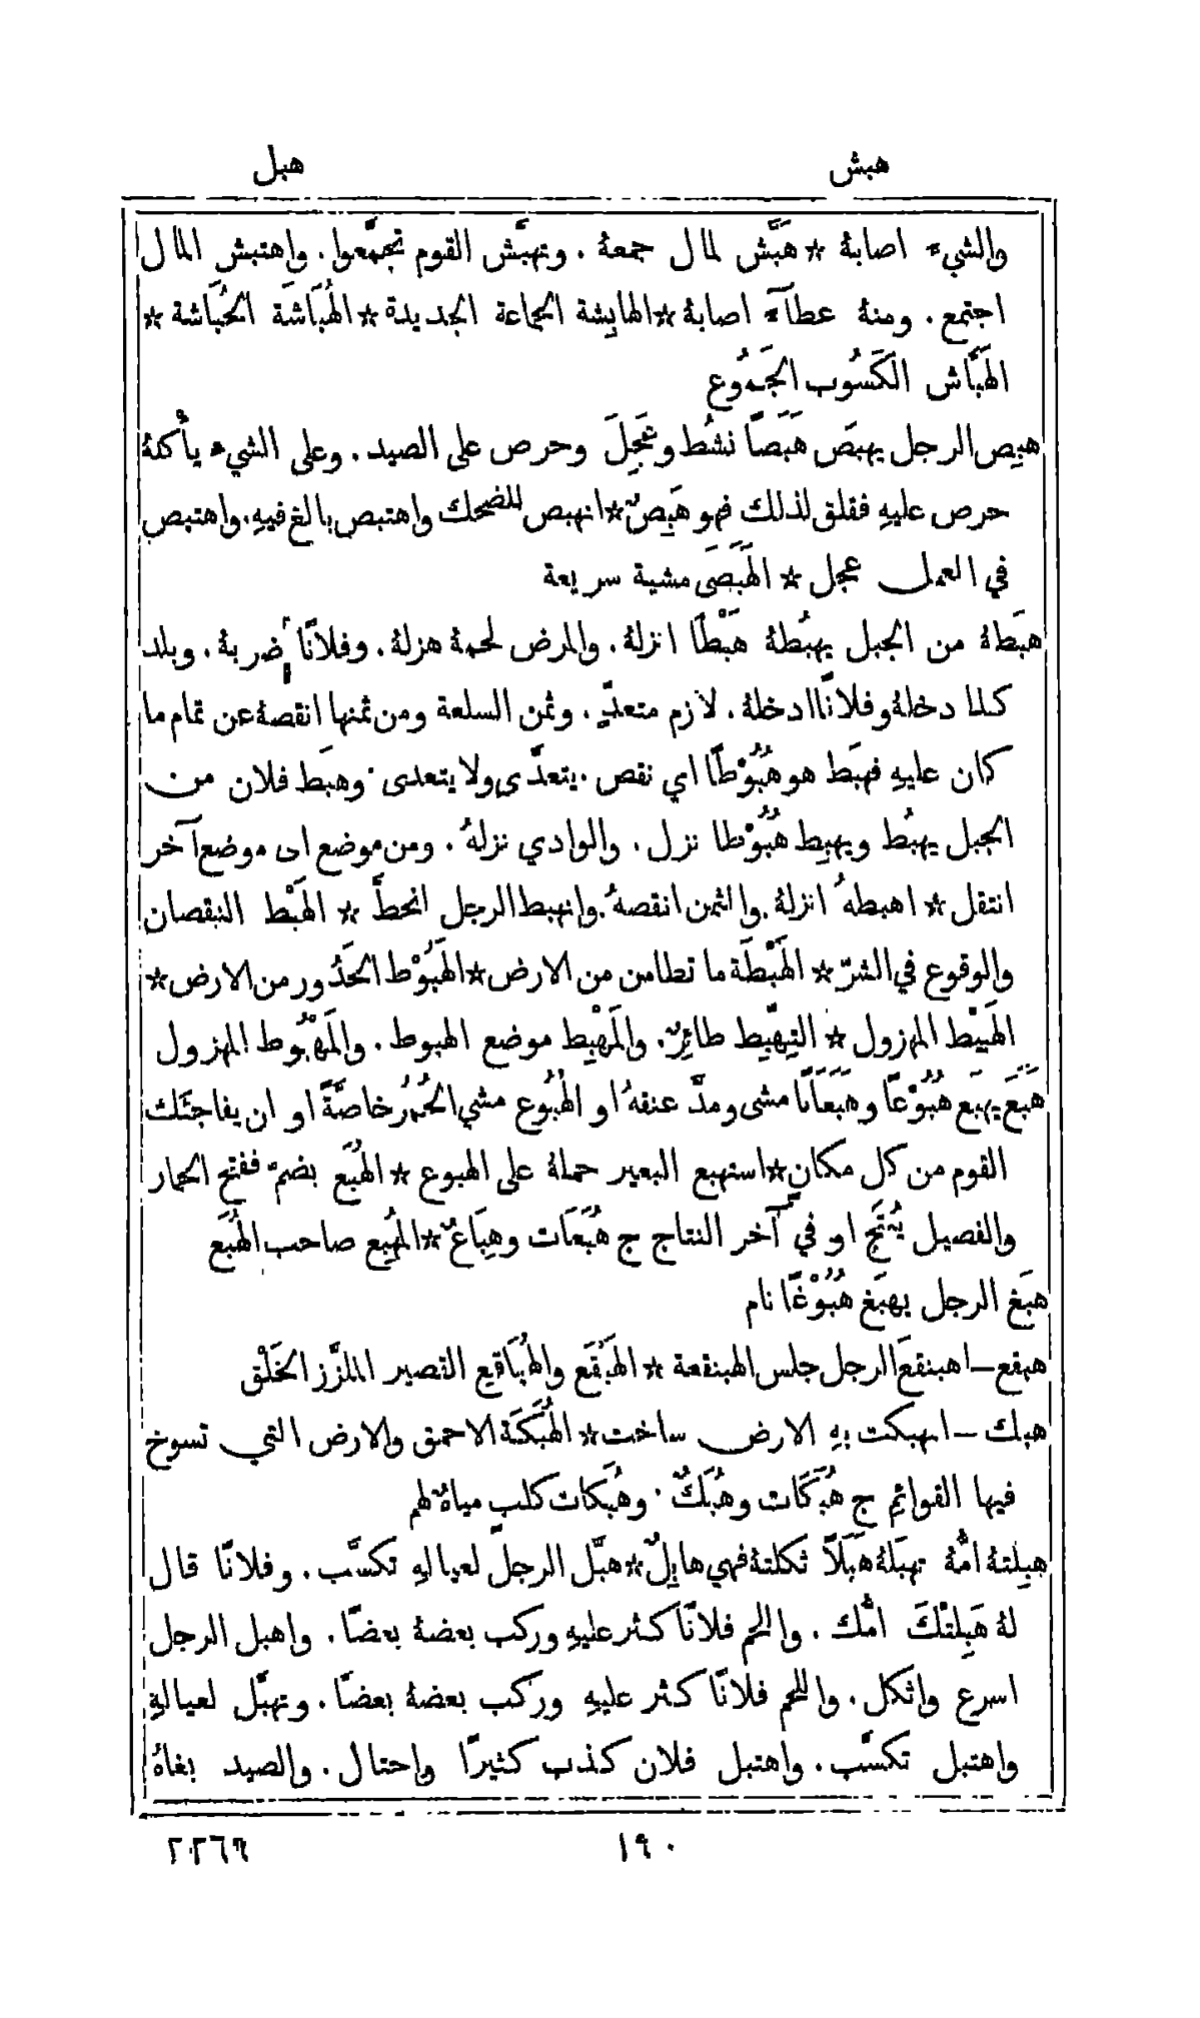 هبش
هبل
والشيء اصابهُ * هَبَّش المال جمعهُ . وتهبَّش القوم تجمَّعوا . واهتبش المال
اجتمع . ومنهُ عطآءً اصابهُ * الهابِشة الجماعة الجديدة * الهُبَاشَة الحُبَاشة *
الهَبَّاش الكَسُوب الجَمُوع
هبِص الرجل يهبَص هَبَصًا نشُط وعَجِلَ وحرص على الصيد . وعلى الشيء يأكلهُ
حرص عليهِ فقلق لذلك فهو هَبِصٌ * انهبص للضحك واهتبص بالغ فيهِ . واهتبص
في العمل عجل * الهَبَصَى مشية سريعة
هبَطهُ من الجبل يهبُطهُ هَبْطًا انزلهُ . والمرض لحمهُ هزلهُ . وفلانًا ضربهُ . وبلد
كذا دخلهُ وفلانًا ادخلهُ . لازم متعدٍّ . وثمن السلعة ومن ثمنها انقصهُ عن تمام ما
كان عليهِ فهبَط هو هُبُوْطًا اي نقص . يتعدَّى ولا يتعدى . وهبَط فلان من
الجبل يهبُط ويهبِط هُبُوْطا نزل . والوادي نزلهُ . ومن موضع الى موضع آخر
انتقل * اهبطهُ انزلهُ . والثمن انقصهُ . وانهبط الرجل انحطَّ * الهَبْط النقصان
والوقوع في الشرّ * الهَبْطَة ما تطامن من الارض * الهَبُوْط الحَدُور من الارض *
الهَبِيْط المهزول * التِهِبِّط طائِرٌ . والمَهْبِط موضع الهبوط . والمَهْبُوط المهزول
هَبَعَ يهبَع هُبُوْعًا وهَبَعَانًا مشى ومدَّ عنقهُ او الهُبُوع مشي الحُمُر خاصَّةً او ان يفاجئَك
القوم من كل مكانٍ * استهبع البعير حملهُ على الهبوع * الهُبَع بضمّ ففتح الحمار
والفصيل يُنْتَج او في آخر النتاج ج هُبَعَات وهِبَاعٌ * المُهبِع صاحب الهُبَع
هبَغ الرجل يهبَغ هُبُوْغًا نام
هبقع – اهبنقعَ الرجل جلس الهبنقعة * الهَبَقَع والهُبَاقِع القصير الملزَّز الخَلْق
هبك – انهبكت بهِ الارض ساخت * الهُبَكَة الاحمق والارض التي تسوخ
فيها القوائِم ج هُبَكَات وهُبَكٌ . وهُبَكات كلبٍ مياهٌ لهم
هبِلتهُ امُّهُ تهبَلهُ هَبَلًا ثكلتهُ فهي هابِلٌ * هبَّل الرجل لعيالهِ تكسَّب . وفلانًا قال
لهُ هَبِلتْكَ امُّك . واللحم فلانًا كثر عليهِ وركب بعضهُ بعضًا . واهبل الرجل
اسرع واثكل . واللحم فلانًا كثر عليهِ وركب بعضهُ بعضًا . وتهبَّل لعيالهِ
واهتبل تكسَّب . واهتبل فلان كذب كثيرًا واحتال . والصيد بغاهُ
١٩٠
٢٢٦٦